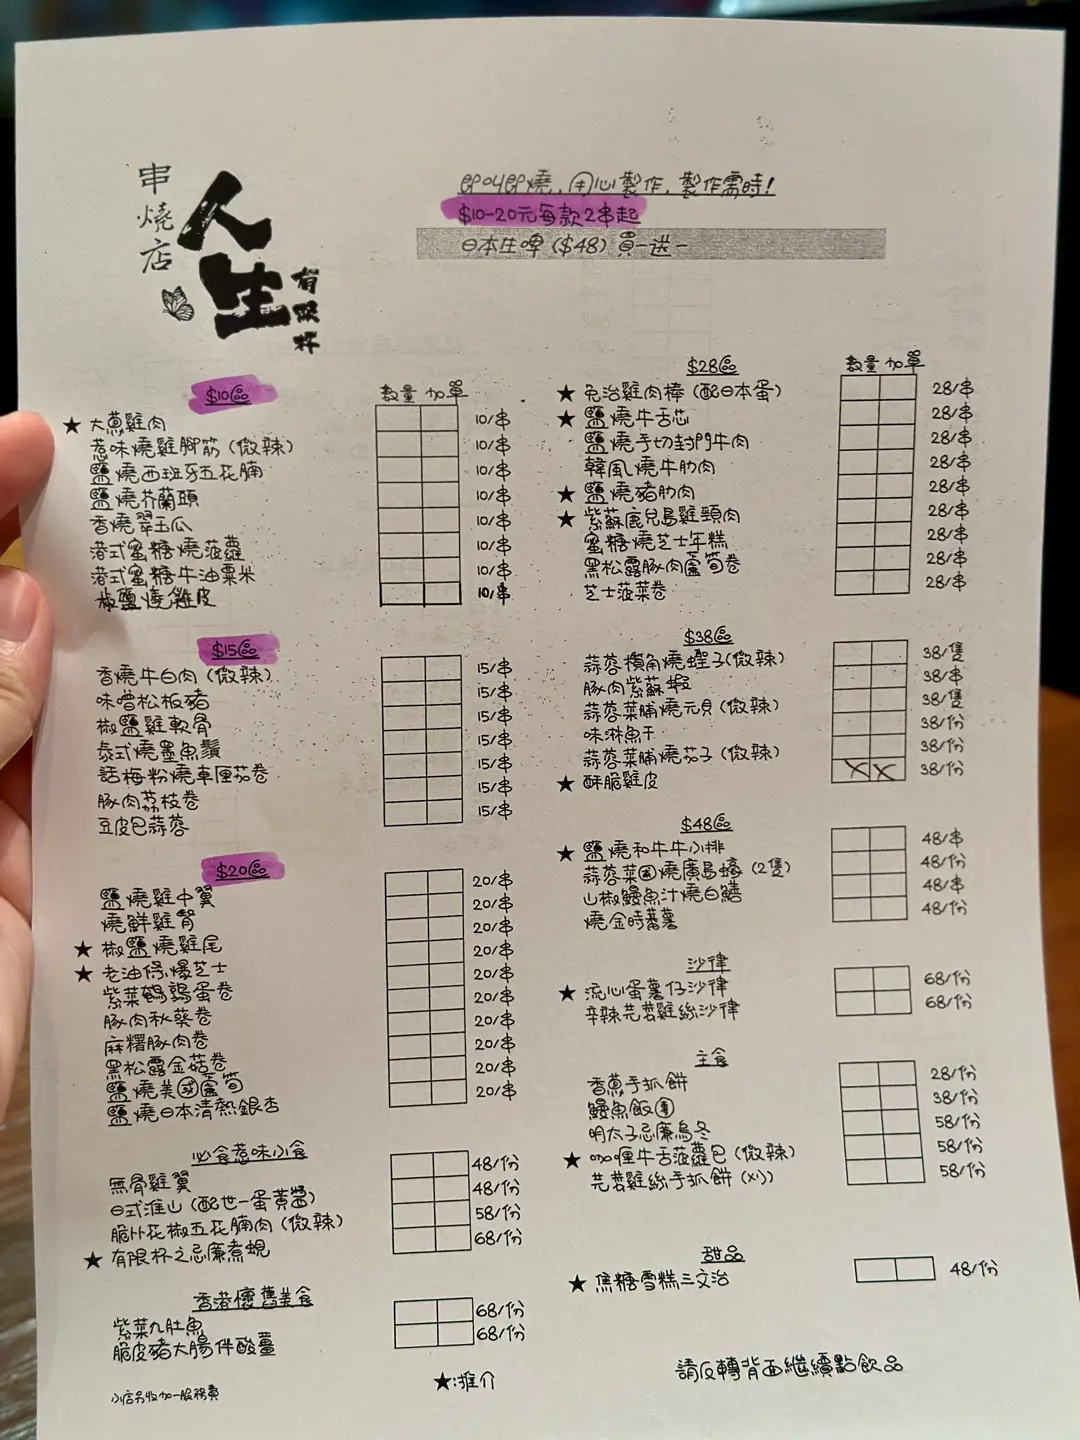 串燒店
人生
有限杯
即叫即燒，用心製作，製作需時！
$10-20元每款2串起
日本生啤（$48）買一送一
$10區 數量 加單
★ 大蔥雞肉 10/串
惹味燒雞腳筋（微辣） 10/串
鹽燒西班牙五花腩 10/串
鹽燒芥蘭頭 10/串
香燒翠玉瓜 10/串
港式蜜糖燒菠蘿 10/串
港式蜜糖牛油粟米 10/串
椒鹽燒雞皮 10/串
$15區
香燒牛白肉（微辣） 15/串
味噌松板豬 15/串
椒鹽雞軟骨 15/串
泰式燒墨魚鬚 15/串
話梅粉燒車厘茄卷 15/串
豚肉荔枝卷 15/串
豆皮包蒜蓉 15/串
$20區
鹽燒雞中翼 20/串
燒鮮雞腎 20/串
★ 椒鹽燒雞尾 20/串
★ 老油條爆芝士 20/串
紫菜鵪鶉蛋卷 20/串
豚肉秋葵卷 20/串
麻糬豚肉卷 20/串
黑松露金菇卷 20/串
鹽燒美國蘆筍 20/串
鹽燒日本清熱銀杏 20/串
必食惹味小食
無骨雞翼 48/份
日式淮山（配世一蛋黃醬） 48/份
脆卜花椒五花腩肉（微辣） 58/份
★ 有限杯之忌廉煮蜆 68/份
香港懷舊美食
紫菜九肚魚 68/份
脆皮豬大腸伴酸薑 68/份
小店另收加一服務費
★:推介
$28區 數量 加單
★ 免治雞肉棒（配日本蛋） 28/串
★ 鹽燒牛舌芯 28/串
鹽燒手切封門牛肉 28/串
韓風燒牛肋肉 28/串
★ 鹽燒豬肋肉 28/串
★ 紫蘇鹿兒島雞頸肉 28/串
蜜糖燒芝士年糕 28/串
黑松露豚肉蘆筍卷 28/串
芝士菠菜卷 28/串
$38區
蒜蓉欖角燒蟶子（微辣） 38/隻
豚肉紫蘇蝦 38/串
蒜蓉菜脯燒元貝（微辣） 38/隻
味淋魚干 38/份
蒜蓉菜脯燒茄子（微辣） 38/份
★ 酥脆雞皮 X X 38/份
$48區
★ 鹽燒和牛牛小排 48/串
蒜蓉菜圃燒廣島蠔（2隻） 48/份
山椒鰻魚汁燒白鱔 48/串
燒金時蕃薯 48/份
沙律
★ 流心蛋薯仔沙律 68/份
辛辣芫荽雞絲沙律 68/份
主食
香蔥手抓餅 28/份
鰻魚飯 38/份
明太子忌廉烏冬 58/份
★ 咖喱牛舌菠蘿包（微辣） 58/份
芫荽雞絲手抓餅（x1） 58/份
甜品
★ 焦糖雪糕三文治 48/份
請反轉背面繼續點飲品